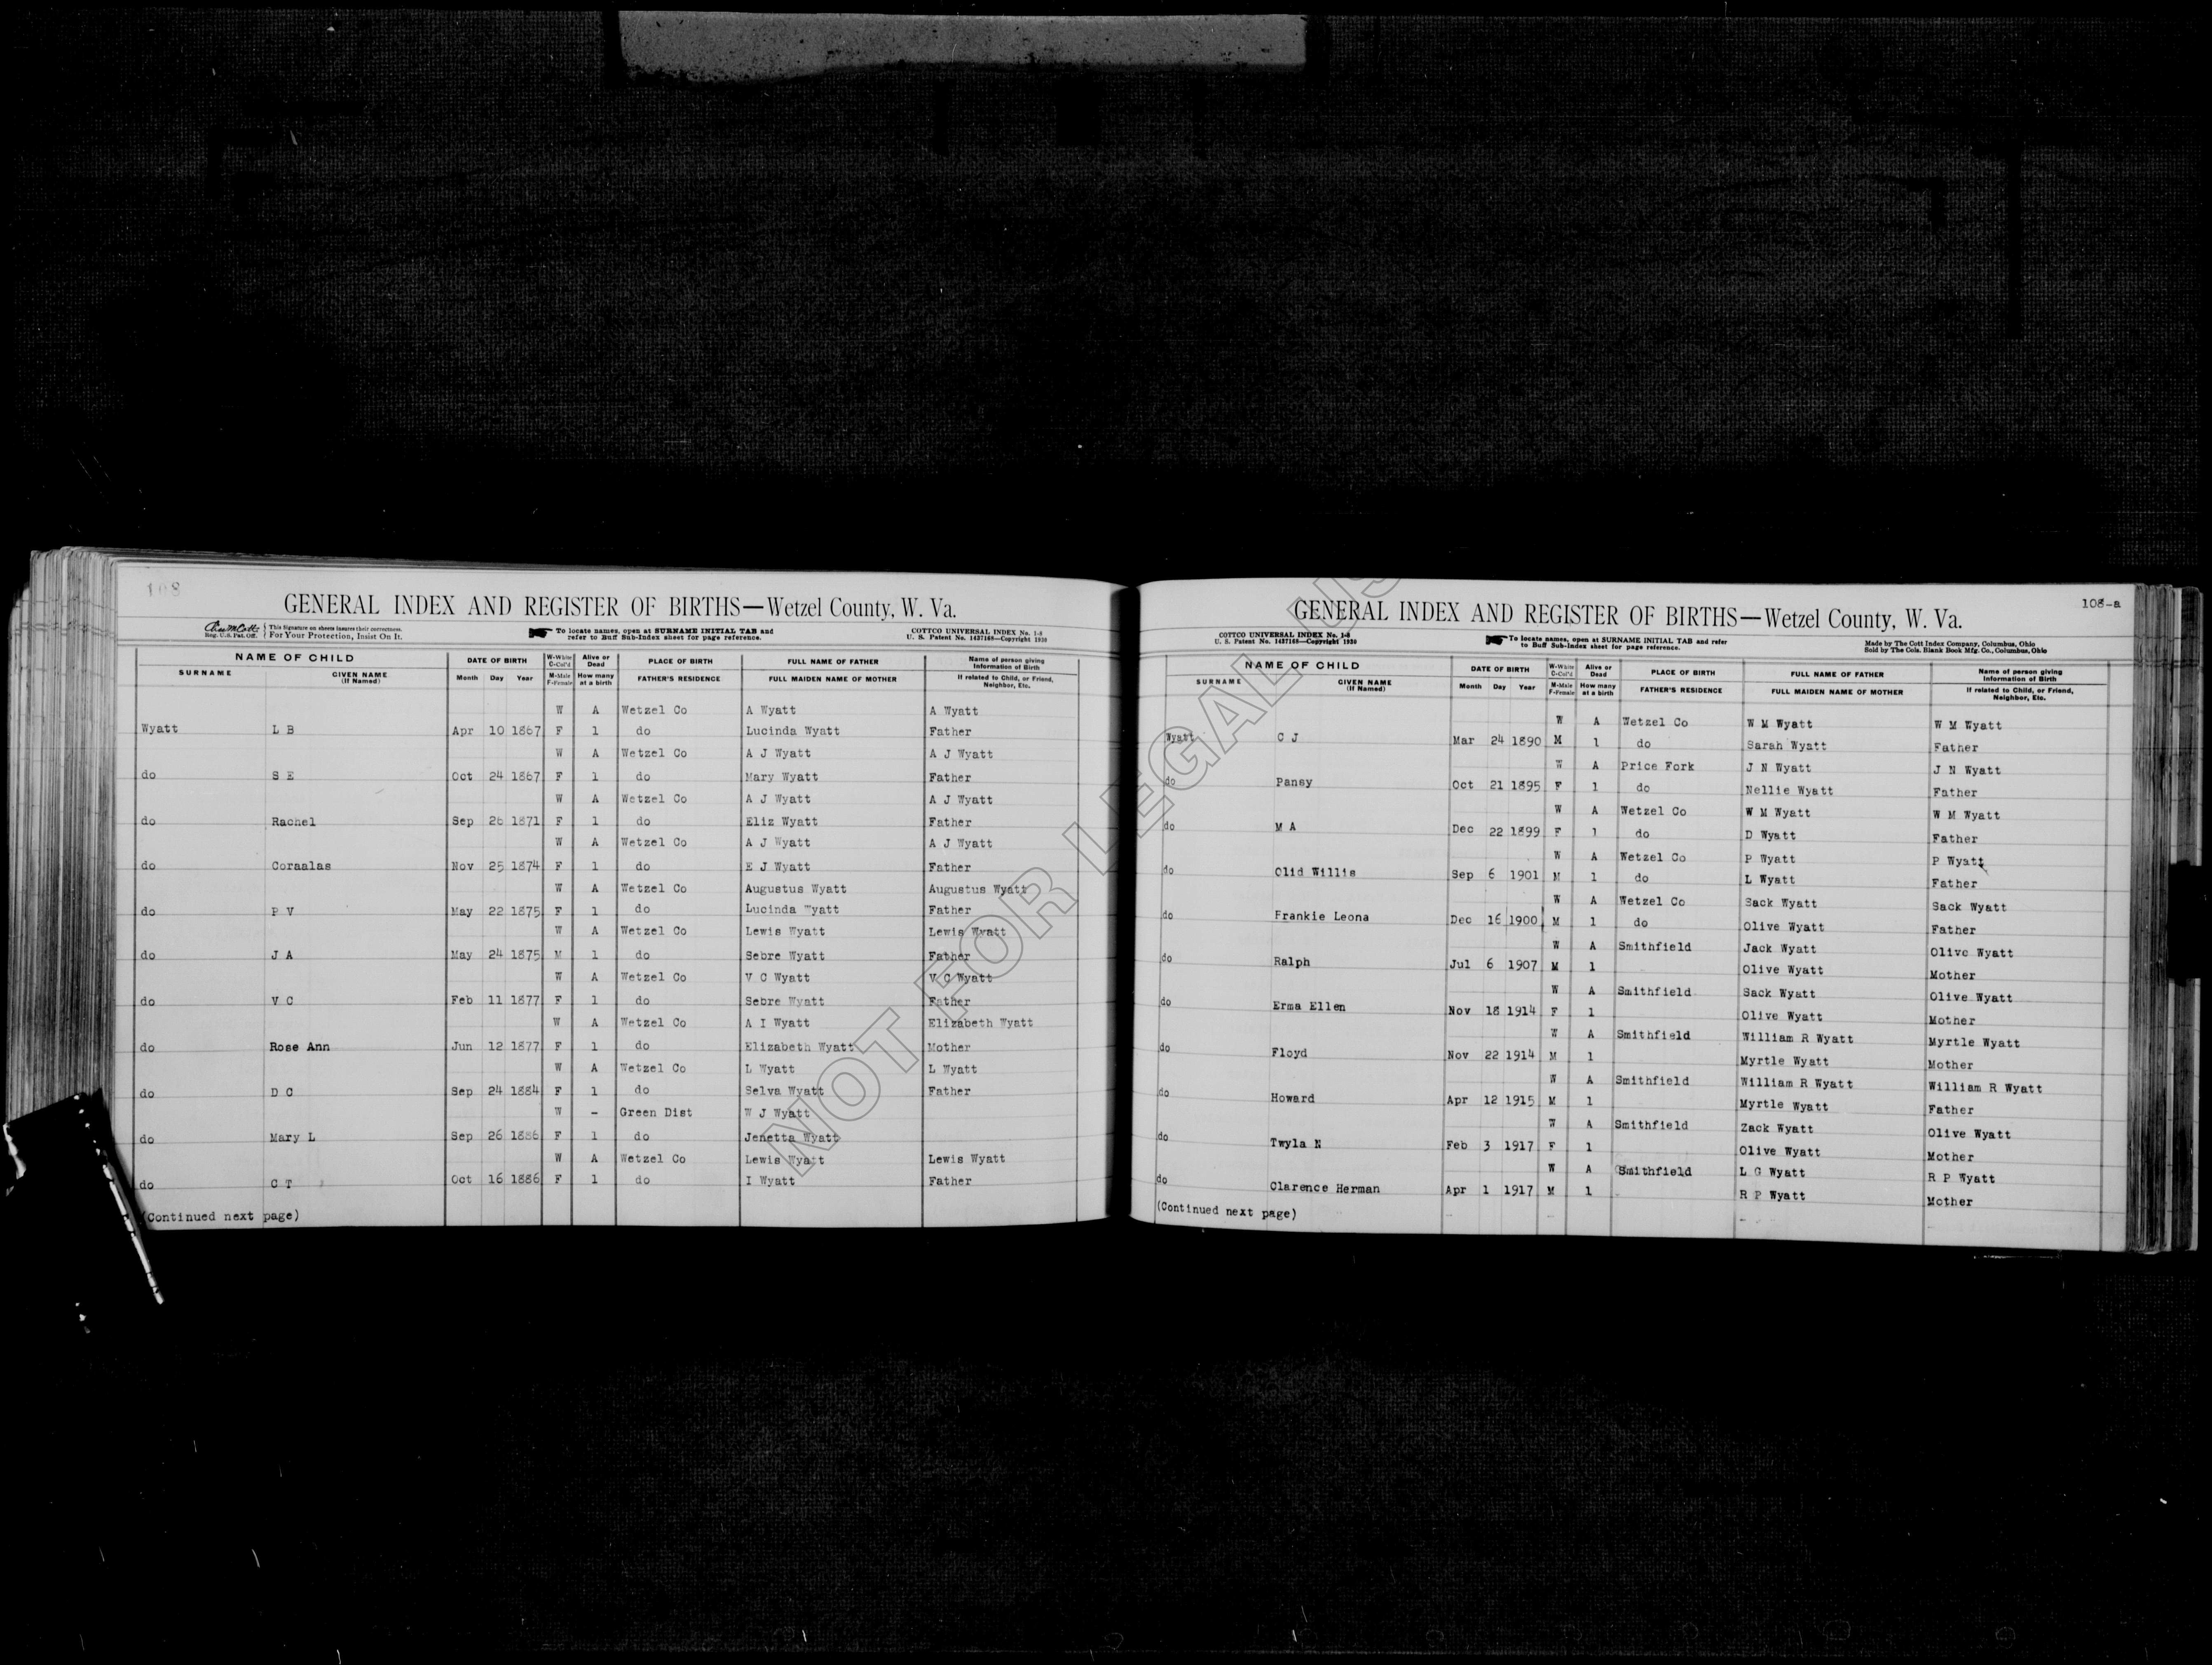 108
GENERAL INDEX AND REGISTER OF BIRTHS—Wetzel County, W. Va.
Reg. U.S. Pat. Off. { This Signature on sheets insures their correctness. For Your Protection, Insist On It.
To locate names, open at SURNAME INITIAL TAB and refer to Buff Sub-Index sheet for page reference.
COTTCO UNIVERSAL INDEX No. 1-8
U. S. Patent No. 1437168—Copyright 1930
NAME OF CHILD DATE OF BIRTH W-White C-Col'd Alive or Dead PLACE OF BIRTH FULL NAME OF FATHER Name of person giving Information of Birth
SURNAME GIVEN NAME (If Named) Month Day Year M-Male F-Female How many at a birth FATHER'S RESIDENCE FULL MAIDEN NAME OF MOTHER If related to Child, or Friend, Neighbor, Etc.
W A Wetzel Co A Wyatt A Wyatt
Wyatt L B Apr 10 1867 F 1 do Lucinda Wyatt Father
W A Wetzel Co A J Wyatt A J Wyatt
do S E Oct 24 1867 F 1 do Mary Wyatt Father
W A Wetzel Co A J Wyatt A J Wyatt
do Rachel Sep 26 1871 F 1 do Eliz Wyatt Father
W A Wetzel Co A J Wyatt A J Wyatt
do Coraalas Nov 25 1874 F 1 do E J Wyatt Father
W A Wetzel Co Augustus Wyatt Augustus Wyatt
do P V May 22 1875 F 1 do Lucinda Wyatt Father
W A Wetzel Co Lewis Wyatt Lewis Wyatt
do J A May 24 1875 M 1 do Sebre Wyatt Father
W A Wetzel Co V C Wyatt V C Wyatt
do V C Feb 11 1877 F 1 do Sebre Wyatt Father
W A Wetzel Co A I Wyatt Elizabeth Wyatt
do Rose Ann Jun 12 1877 F 1 do Elizabeth Wyatt Mother
W A Wetzel Co L Wyatt L Wyatt
do D C Sep 24 1884 F 1 do Selva Wyatt Father
W - Green Dist W J Wyatt
do Mary L Sep 26 1886 F 1 do Jenetta Wyatt
W A Wetzel Co Lewis Wyatt Lewis Wyatt
do C T Oct 16 1886 F 1 do I Wyatt Father
(Continued next page)
108-a
GENERAL INDEX AND REGISTER OF BIRTHS—Wetzel County, W. Va.
COTTCO UNIVERSAL INDEX No. 1-8
U. S. Patent No. 1437168—Copyright 1930
To locate names, open at SURNAME INITIAL TAB and refer to Buff Sub-Index sheet for page reference.
Made by The Cott Index Company, Columbus, Ohio
Sold by The Cols. Blank Book Mfg. Co., Columbus, Ohio
NAME OF CHILD DATE OF BIRTH W-White C-Col'd Alive or Dead PLACE OF BIRTH FULL NAME OF FATHER Name of person giving Information of Birth
SURNAME GIVEN NAME (If Named) Month Day Year M-Male F-Female How many at a birth FATHER'S RESIDENCE FULL MAIDEN NAME OF MOTHER If related to Child, or Friend, Neighbor, Etc.
W A Wetzel Co W M Wyatt W M Wyatt
Wyatt C J Mar 24 1890 M 1 do Sarah Wyatt Father
W A Price Fork J N Wyatt J N Wyatt
do Pansy Oct 21 1895 F 1 do Nellie Wyatt Father
W A Wetzel Co W M Wyatt W M Wyatt
do M A Dec 22 1899 F 1 do D Wyatt Father
W A Wetzel Co P Wyatt P Wyatt
do Olid Willis Sep 6 1901 M 1 do L Wyatt Father
W A Wetzel Co Sack Wyatt Sack Wyatt
do Frankie Leona Dec 16 1900 M 1 do Olive Wyatt Father
W A Smithfield Jack Wyatt Olive Wyatt
do Ralph Jul 6 1907 M 1 Olive Wyatt Mother
W A Smithfield Sack Wyatt Olive Wyatt
do Erma Ellen Nov 18 1914 F 1 Olive Wyatt Mother
W A Smithfield William R Wyatt Myrtle Wyatt
do Floyd Nov 22 1914 M 1 Myrtle Wyatt Mother
W A Smithfield William R Wyatt William R Wyatt
do Howard Apr 12 1915 M 1 Myrtle Wyatt Father
W A Smithfield Zack Wyatt Olive Wyatt
do Twyla N Feb 3 1917 F 1 Olive Wyatt Mother
W A Smithfield L G Wyatt R P Wyatt
do Clarence Herman Apr 1 1917 M 1 R P Wyatt Mother
(Continued next page)
NOT FOR LEGAL US